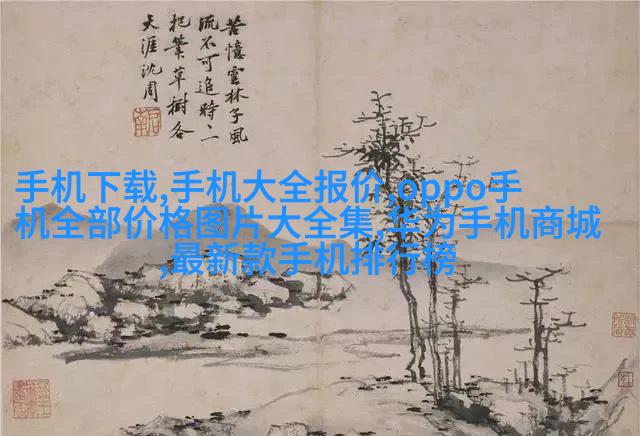 苦憶雲林子風
流不可追時二
把筆草樹各
天涯沈周
手机下载,手机大全报价,oppo手
机全部价格图片大全集,华为手机商城
,最新款手机排行榜